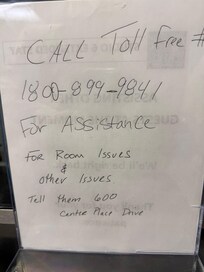 CALL Toll Free #
1800-899-9841
For Assistance
For Room Issues
&
other Issues
Tell them 600
Center Place Drive